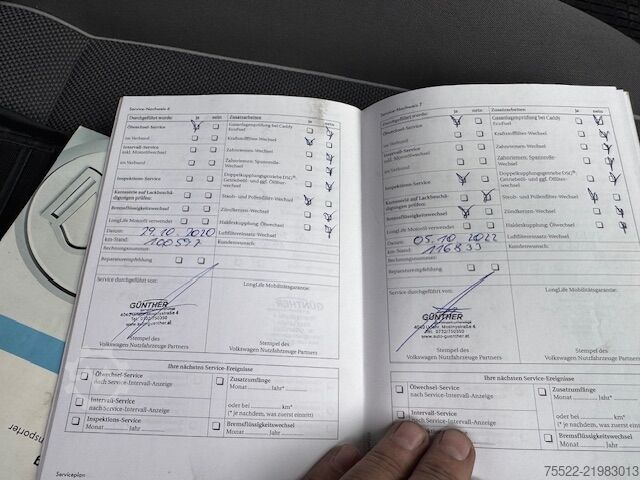 Service-Nachweis 6
Durchgeführt wurde: ja nein Zusatzarbeiten ja nein
Ölwechsel-Service
Gasanlagenprüfung bei Caddy EcoFuel
im Verbund
Kraftstofffilter-Wechsel
Intervall-Service inkl. Motorölwechsel
Zahnriemen-Wechsel
im Verbund
Zahnriemen: Spannrolle-Wechsel
Inspektions-Service
Doppelkupplungsgetriebe DSG®: Getriebeöl- und ggf. Ölfilter-wechsel
Karosserie auf Lackbeschä-
digungen prüfen:
Staub- und Pollenfilter-Wechsel
Bremsflüssigkeitswechsel
Zündkerzen-Wechsel
LongLife Motoröl verwendet
Haldexkupplung: Ölwechsel
Datum: 29.10.2020
Luftfiltereinsatz-Wechsel
km-Stand: 100597
Kundenwunsch:
Rechnungsnummer:
Reparaturempfehlung
Service durchgeführt von:
LongLife Mobilitätsgarantie:
GÜNTHER
Tel: 0732/750350
www.auto-guenther.at
GÜNTHER
Stempel des
Volkswagen Nutzfahrzeuge Partners
Stempel des
Volkswagen Nutzfahrzeuge Partners
Ihre nächsten Service-Ereignisse
Ölwechsel-Service
nach Service-Intervall-Anzeige
Zusatzumfänge
Monat Jahr*
Intervall-Service
nach Service-Intervall-Anzeige
oder bei km*
(* je nachdem, was zuerst eintritt)
Inspektions-Service
Monat Jahr
Bremsflüssigkeitswechsel
Monat Jahr
Serviceplan
Service-Nachweis 7
Durchgeführt wurde: ja nein Zusatzarbeiten ja nein
Ölwechsel-Service
Gasanlagenprüfung bei Caddy EcoFuel
im Verbund
Kraftstofffilter-Wechsel
Intervall-Service inkl. Motorölwechsel
Zahnriemen-Wechsel
im Verbund
Zahnriemen: Spannrolle-Wechsel
Inspektions-Service
Doppelkupplungsgetriebe DSG®: Getriebeöl- und ggf. Ölfilter-wechsel
Karosserie auf Lackbeschä-
digungen prüfen:
Staub- und Pollenfilter-Wechsel
Bremsflüssigkeitswechsel
Zündkerzen-Wechsel
LongLife Motoröl verwendet
Haldexkupplung: Ölwechsel
Datum: 05.10.2022
Luftfiltereinsatz-Wechsel
km-Stand: 116833
Kundenwunsch:
Rechnungsnummer:
Reparaturempfehlung
Service durchgeführt von:
LongLife Mobilitätsgarantie:
GÜNTHER
Tel: 0732/750350
www.auto-guenther.at
Stempel des
Volkswagen Nutzfahrzeuge Partners
Stempel des
Volkswagen Nutzfahrzeuge Partners
Ihre nächsten Service-Ereignisse
Ölwechsel-Service
nach Service-Intervall-Anzeige
Zusatzumfänge
Monat Jahr*
Intervall-Service
oder bei km*
(* je nachdem, was zuerst eintritt)
Bremsflüssigkeitswechsel
Monat Jahr
75522-21983013